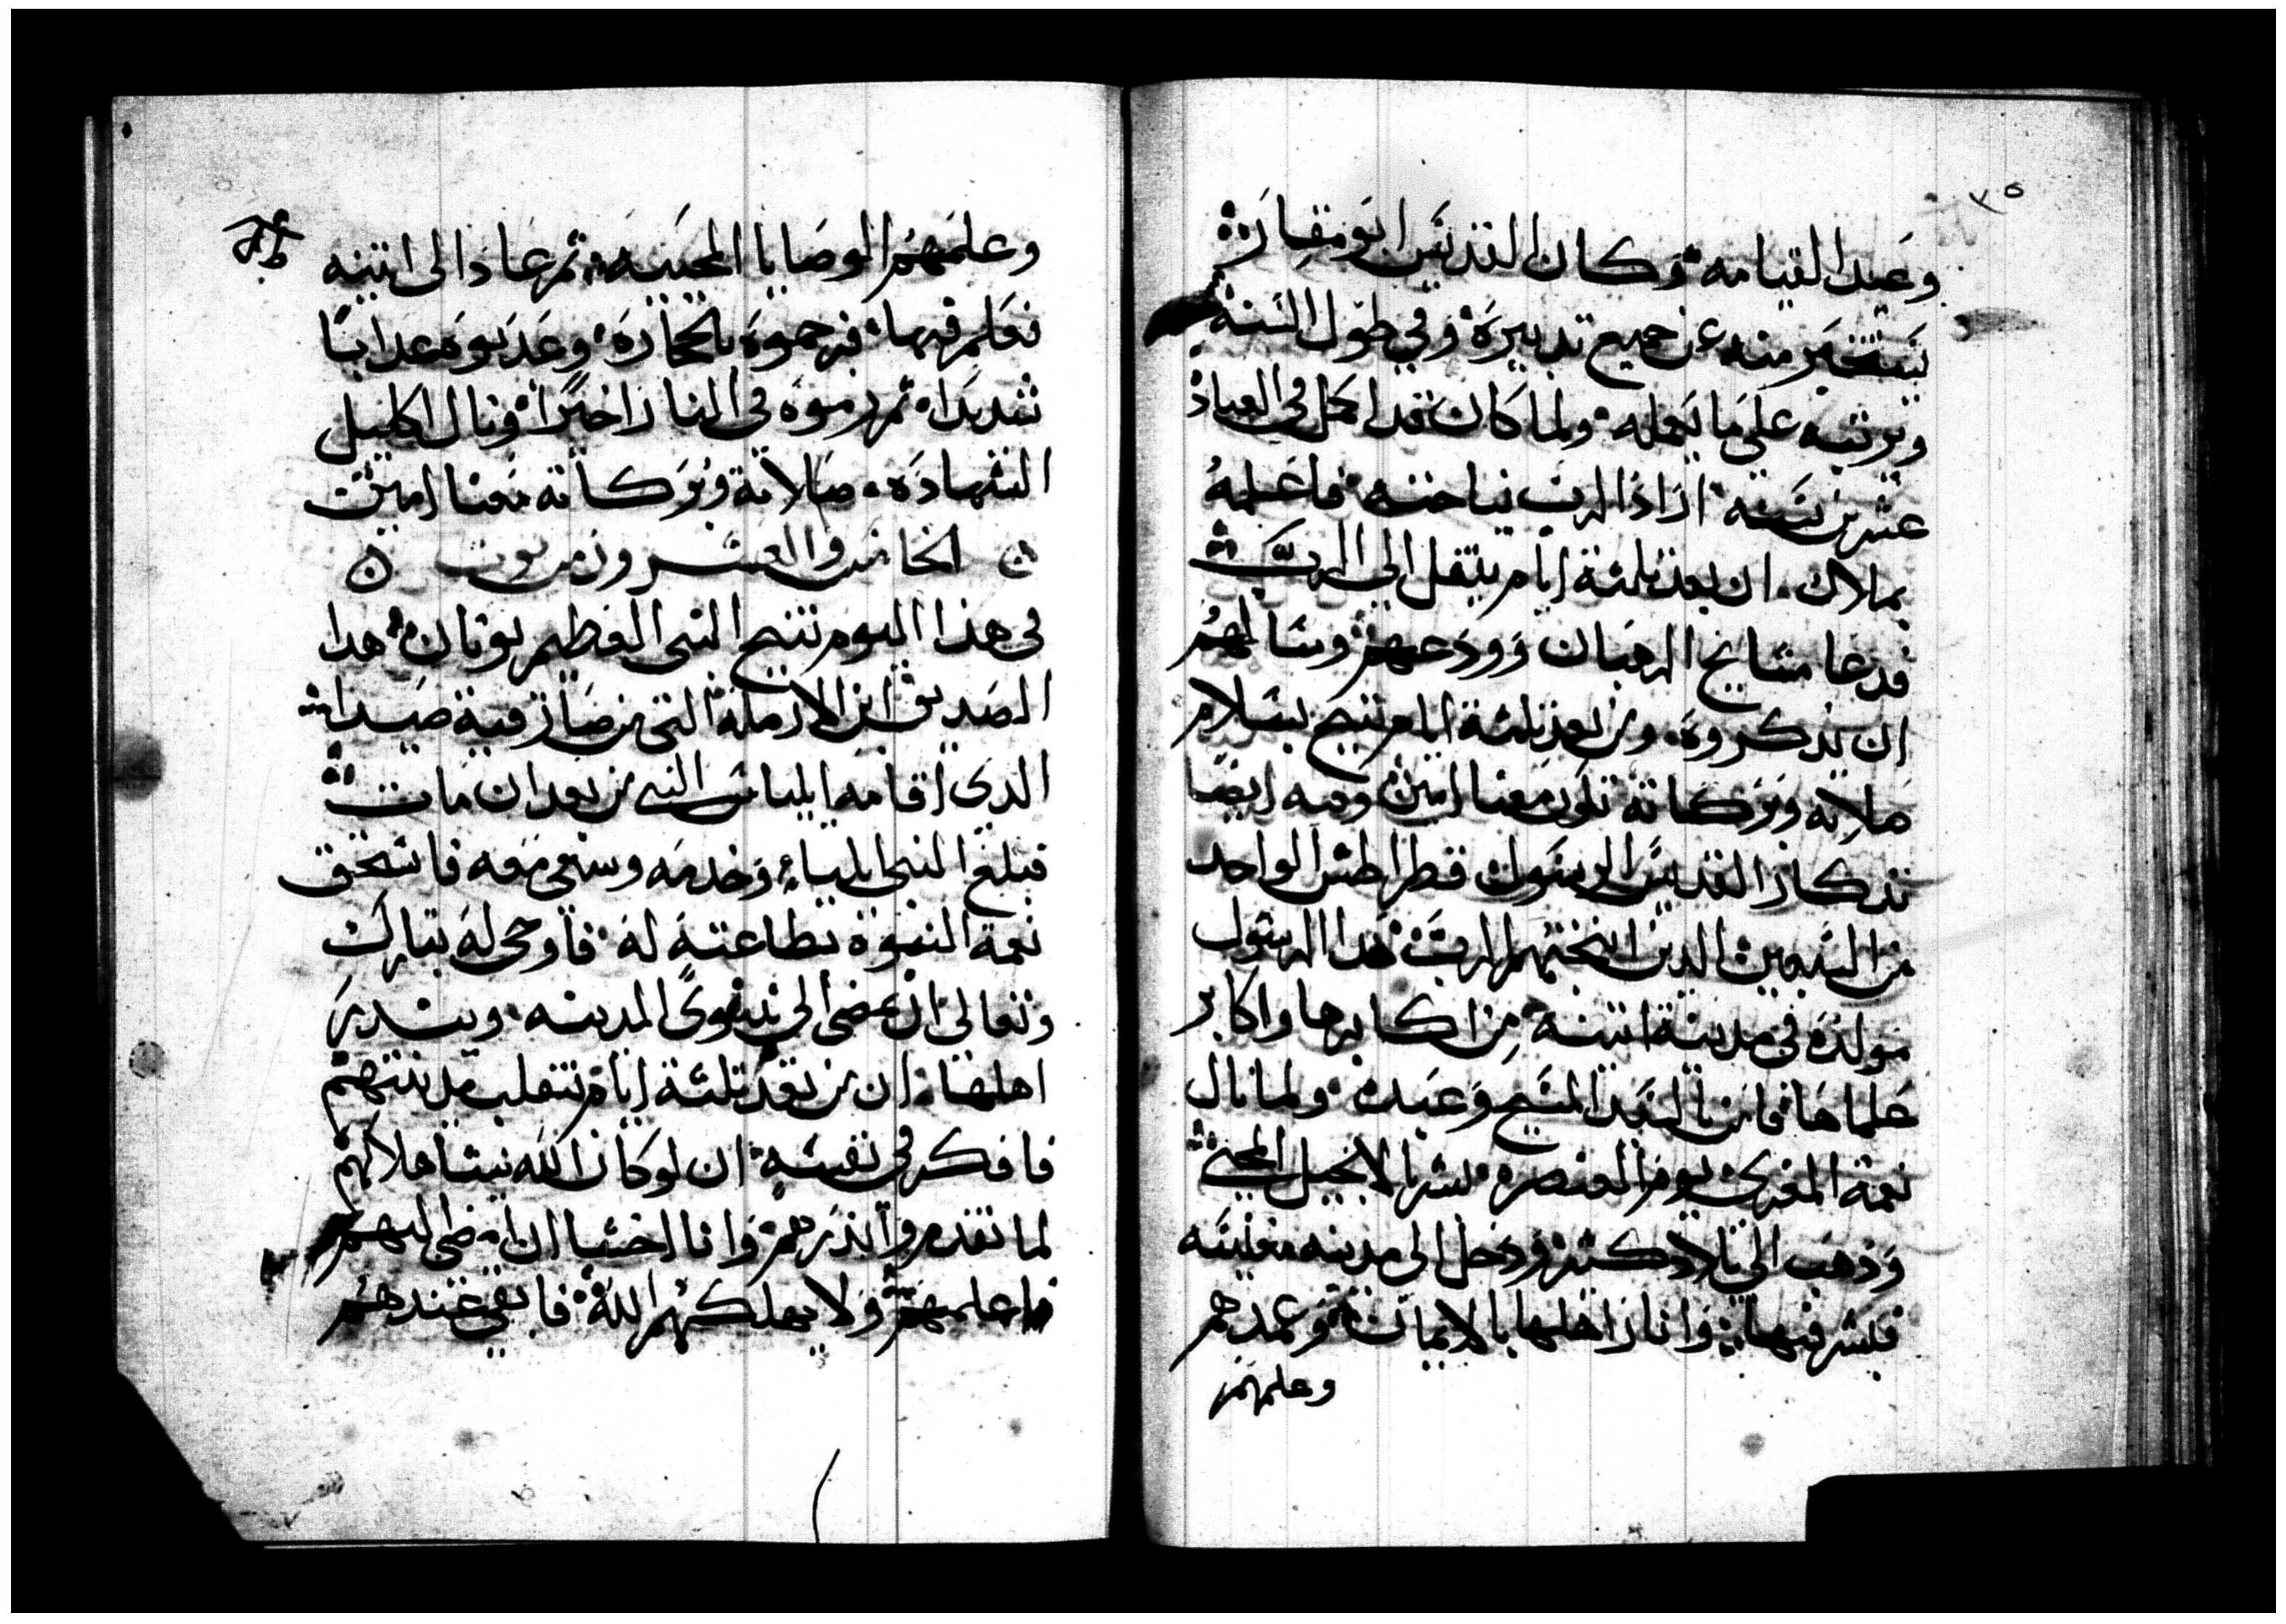 ٣٥
وعيد القيامه وكان القديس ابو مقاره
يستخبر منه عن جميع تدبيره وفي طول السنة
ويرتبه على ما يعمله ولما كان قد اكمل في العباده
عشرين سنه اراد الرب نياحته فاعلمه
بملاك ان بعد ثلثة ايام ينتقل الى الرب
فدعا مشايخ الرهبان وودعهم وسالهم
ان يذكروه ومن بعد ثلثة ايام تنيح بسلام
صلاته وبركاته تكون معنا امين وفيه ايضا
تذكار القديس الرسول قطراطس الواحد
من السبعين الدين انتخبهم الرب هدا الرسول
مولده في مدينة اتينه من اكابرها واكابر
علماها فامن بالسيد المسيح وعبده ولما نال
نعمة المعزي يوم العنصره بشر بالانجيل المحيي
وذهب الى بلاد كتيره ودخل الى مدينه مغنيسه
فبشر فيها وانار اهلها بالايمان وعمدهم
وعلمهم
وعلمهم الوصايا المحييه ثم عاد الى اتينه
فعلم فيها فرجموه بالحجاره وعدبوه عدابا
شديدا ثم رموه في النار اخيرا ونال اكليل
الشهاده صلاته وبركاته معنا امين
الخامس والعشرون من توت
في هذا اليوم تنيح النبي العظيم يونان هدا
الصديق ابن الارملة التي من صارفية صيدا
الدي اقامه ايلياس النبي من بعد ان مات
فبلغ النبي ايلياء وخدمه وسعى معه فاستحق
نعمة النبوة بطاعته له فاوحى له تبارك
وتعالى ان يمضي الى نينوى المدينه وينذر
اهلها ان من بعد ثلثة ايام تنقلب مدينتهم
فافكر في نفسه ان لو كان الله يشا هلاكهم
لما تقدم وانذرهم وانا اخشا ان امضي اليهم
فاعلمهم ولا يهلكهم الله فابقى عندهم